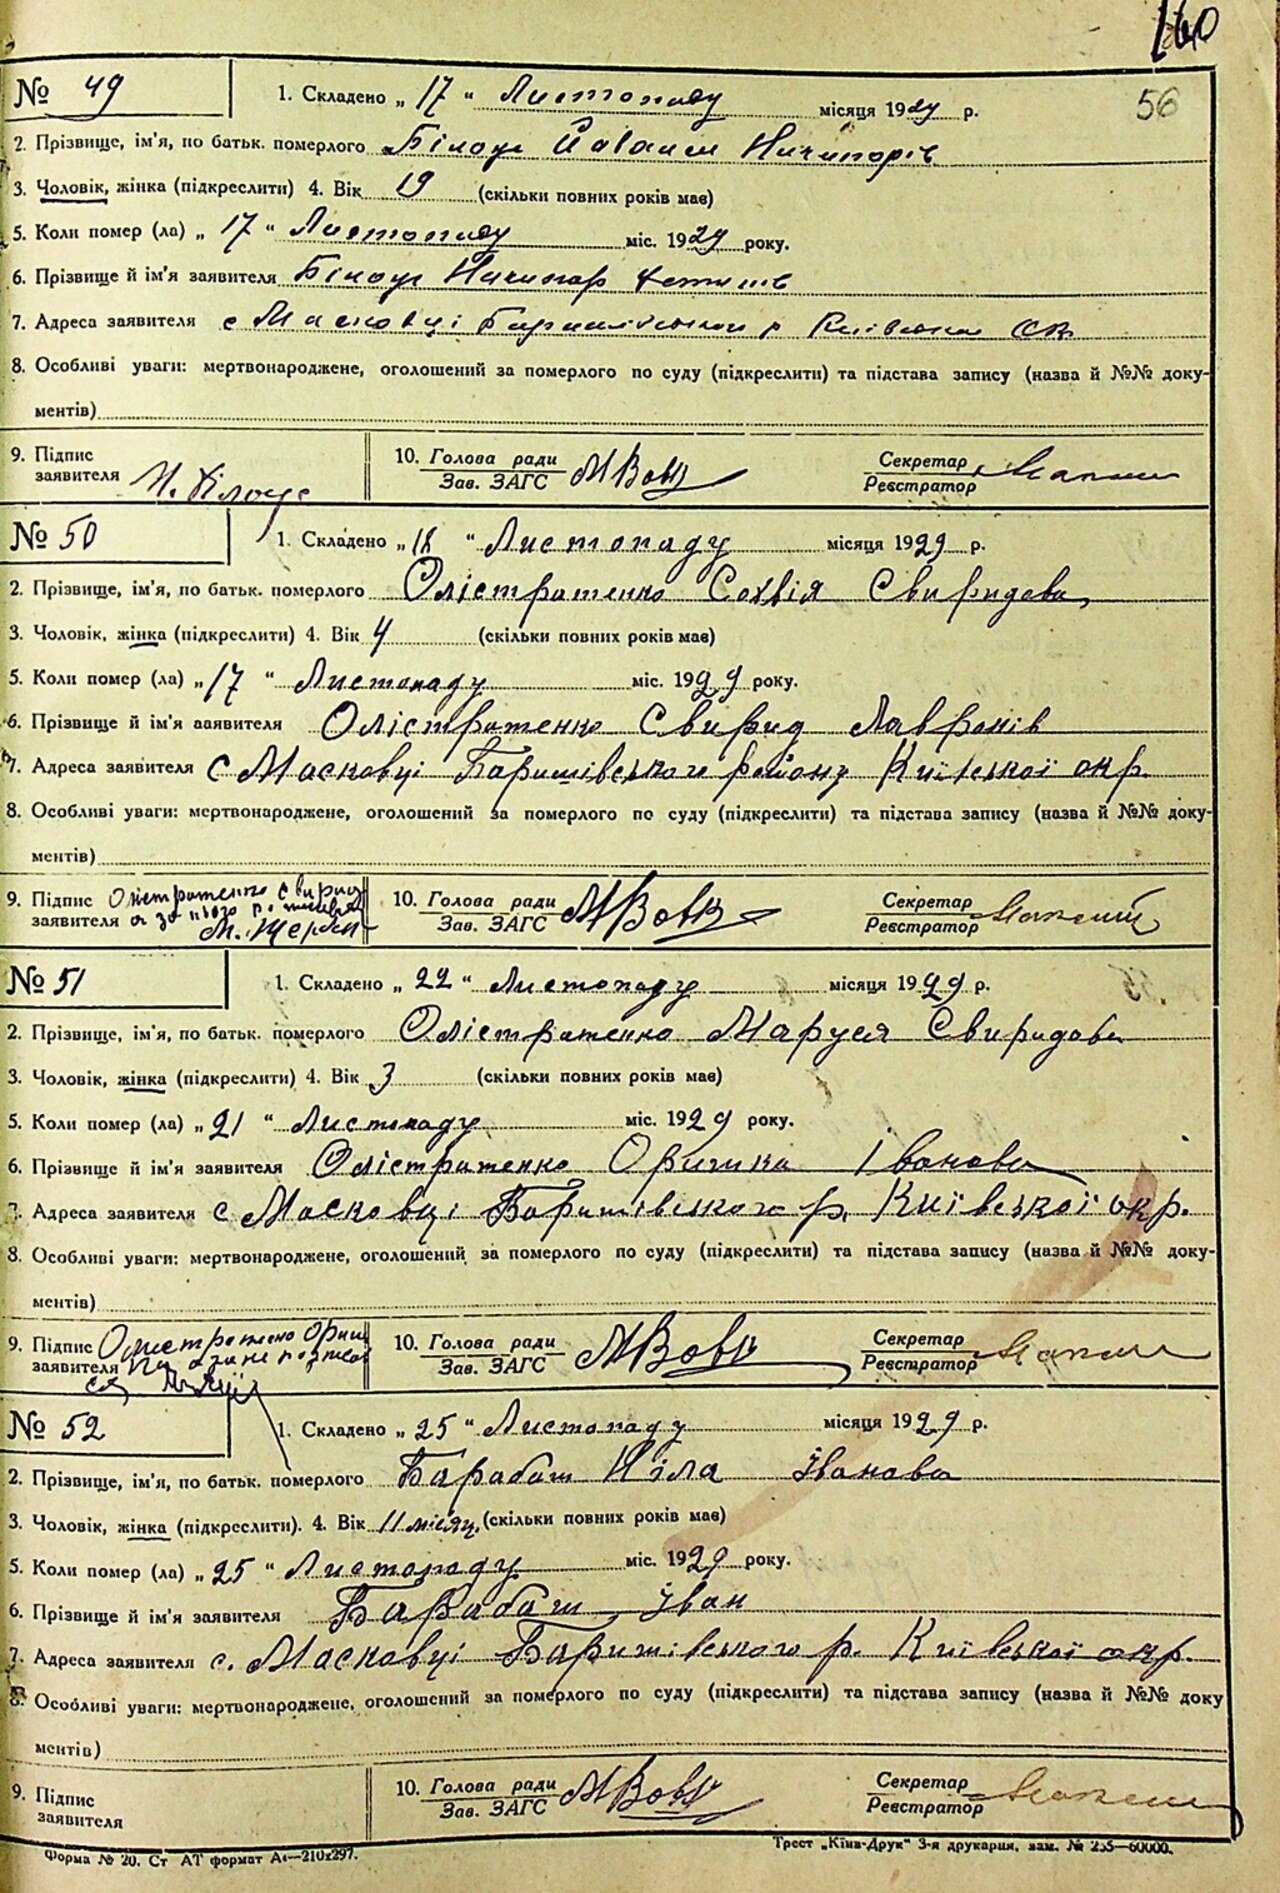 160
№ 49 1. Складено „ 17 “ Листопаду місяця 1929 р. 56
2. Прізвище, ім'я, по батьк. померлого Білоус Ничипорів
3. Чоловік, жінка (підкреслити) 4. Вік 19 (скільки повних років має)
5. Коли помер (ла) „ 17 “ Листопаду міс. 1929 року.
6. Прізвище й ім'я заявителя Білоус Ничипор
7. Адреса заявителя с Масковці р Київської ок
8. Особливі уваги: мертвонароджене, оголошений за померлого по суду (підкреслити) та підстава запису (назва й №№ доку-
ментів)
9. Підпис заявителя Н. Білоус 10. Голова ради Зав. ЗАГС МВовк Секретар Реєстратор
№ 50 1. Складено „ 18 “ Листопаду місяця 1929 р.
2. Прізвище, ім'я, по батьк. померлого Олістратенко Сохвія Свиридова
3. Чоловік, жінка (підкреслити) 4. Вік 4 (скільки повних років має)
5. Коли помер (ла) „ 17 “ Листопаду міс. 1929 року.
6. Прізвище й ім'я заявителя Олістратенко Свирид Лавронів
7. Адреса заявителя с Масковці Баришівського району Київської окр.
8. Особливі уваги: мертвонароджене, оголошений за померлого по суду (підкреслити) та підстава запису (назва й №№ доку-
ментів)
9. Підпис заявителя Олістратенко Свирид а за нього 10. Голова ради Зав. ЗАГС МВовк Секретар Реєстратор
№ 51 1. Складено „ 22 “ Листопаду місяця 1929 р.
2. Прізвище, ім'я, по батьк. померлого Олістратенко Маруся Свиридова
3. Чоловік, жінка (підкреслити) 4. Вік 3 (скільки повних років має)
5. Коли помер (ла) „ 21 “ Листопаду міс. 1929 року.
6. Прізвище й ім'я заявителя Олістратенко Оришка Іванова
7. Адреса заявителя с Масковці Баришівського р. Київської окр.
8. Особливі уваги: мертвонароджене, оголошений за померлого по суду (підкреслити) та підстава запису (назва й №№ доку-
ментів)
9. Підпис заявителя 10. Голова ради Зав. ЗАГС МВовк Секретар Реєстратор
№ 52 1. Складено „ 25 “ Листопаду місяця 1929 р.
2. Прізвище, ім'я, по батьк. померлого Барабаш Ніла Іванова
3. Чоловік, жінка (підкреслити). 4. Вік 11 місяц. (скільки повних років має)
5. Коли помер (ла) „ 25 “ Листопаду міс. 1929 року.
6. Прізвище й ім'я заявителя Барабаш Іван
7. Адреса заявителя с. Масковці Баришівського р. Київської окр.
8. Особливі уваги: мертвонароджене, оголошений за померлого по суду (підкреслити) та підстава запису (назва й №№ доку
ментів)
9. Підпис заявителя 10. Голова ради Зав. ЗАГС МВовк Секретар Реєстратор
Форма № 20. Ст АТ формат А4—210x297. Трест „Київ-Друк“ 3-я друкарня, зам. № 255—60000.